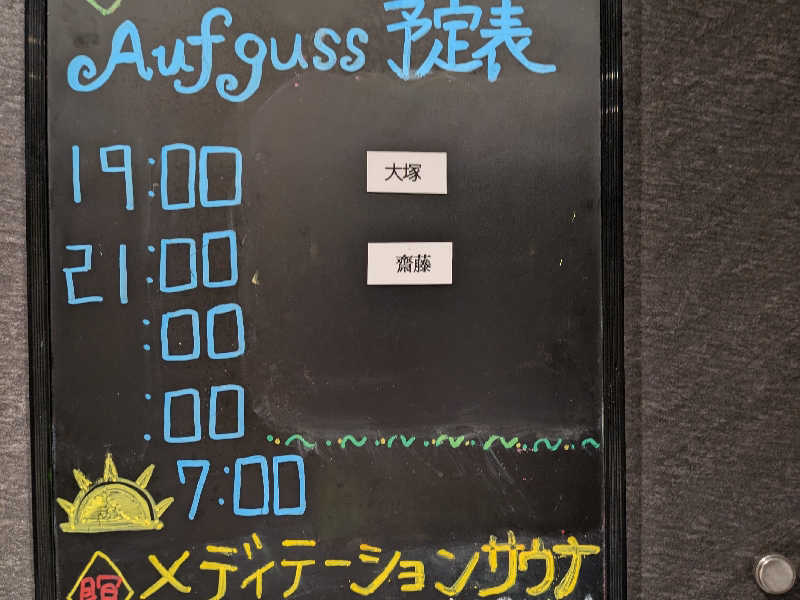 Aufguss 予定表
19:00 大塚
21:00 齋藤
:00
:00
7:00
メディテーションサウナ